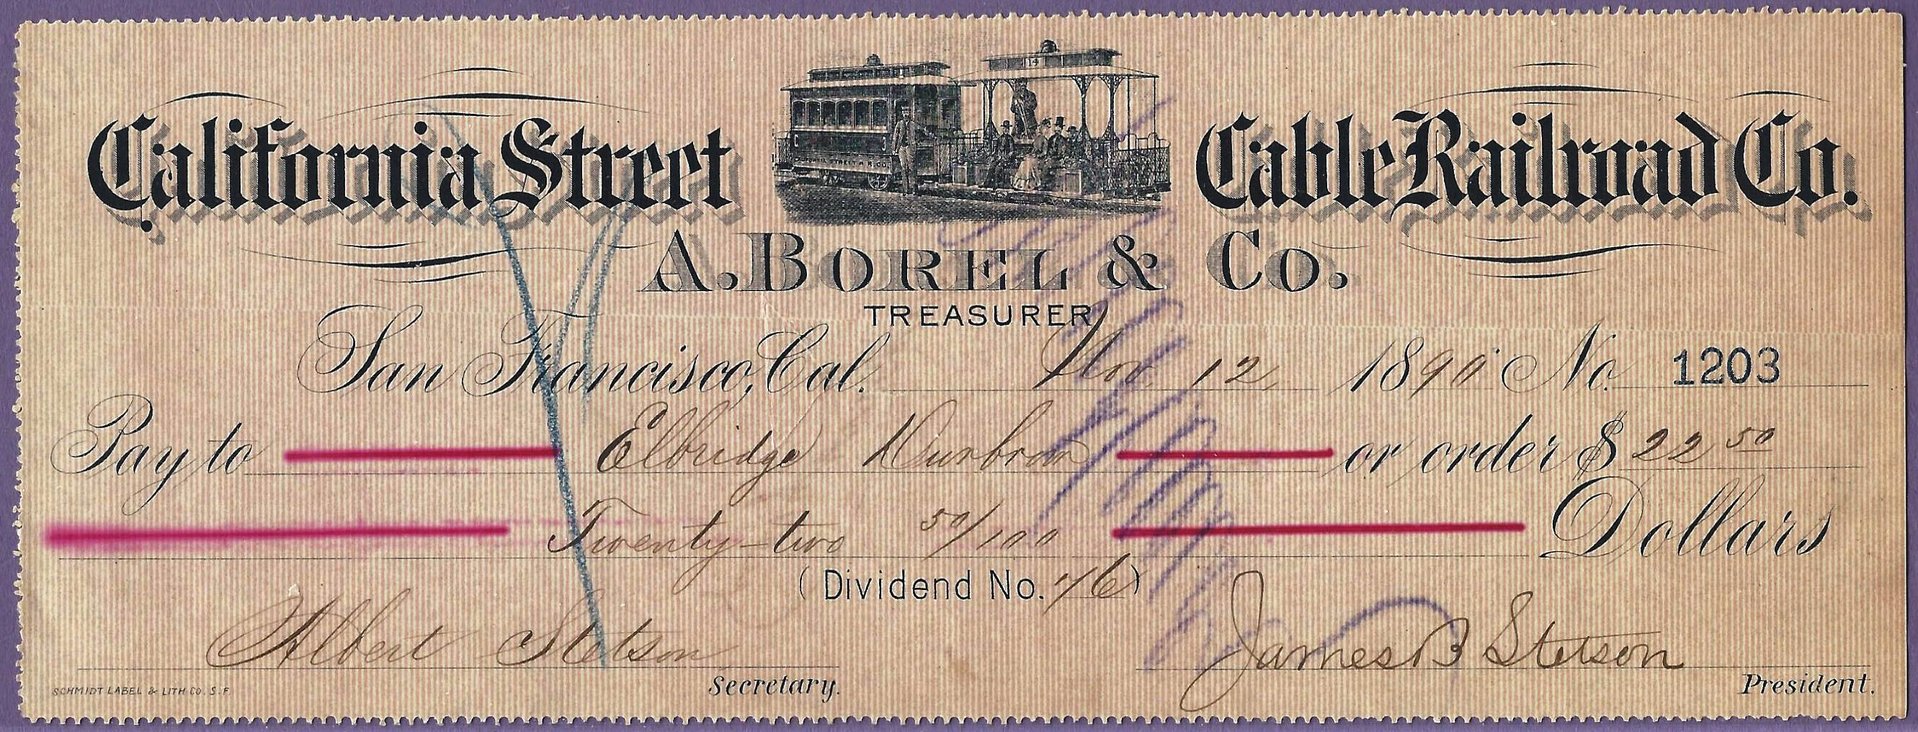 California Street Cable Railroad Co.
14
A. BOREL & CO.
TREASURER
San Francisco, Cal. Nov 12, 1890 No. 1203
Pay to Elbridge Durbrow or order $ 22 50
Twenty-two 50/100 Dollars
(Dividend No. 76)
Albert Stetson James B Stetson
Secretary. President.
SCHMIDT LABEL & LITH. CO. S. F.